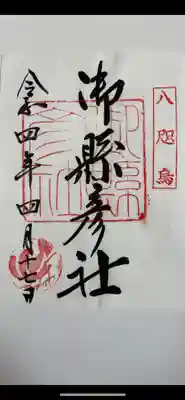 八咫烏
御縣彦社
令和四年 四月十七日